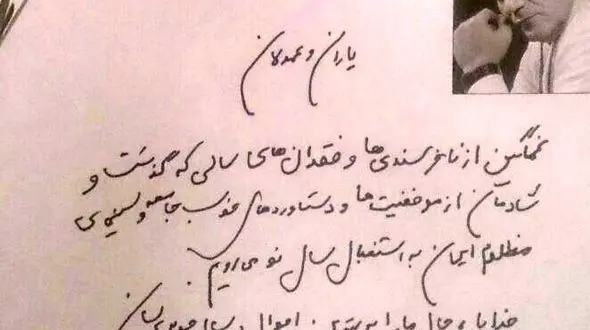 یاران و همدلان
غمگین از ناخرسندی‌ها و فقدان‌های سالی که گذشت و
شادمان از موفقیت‌ها و دستاوردهای خوب جامعه و سینمای
مظلوم ایران به استقبال سال نو می‌رویم.
خدایا حال ما را به بهترین احوال